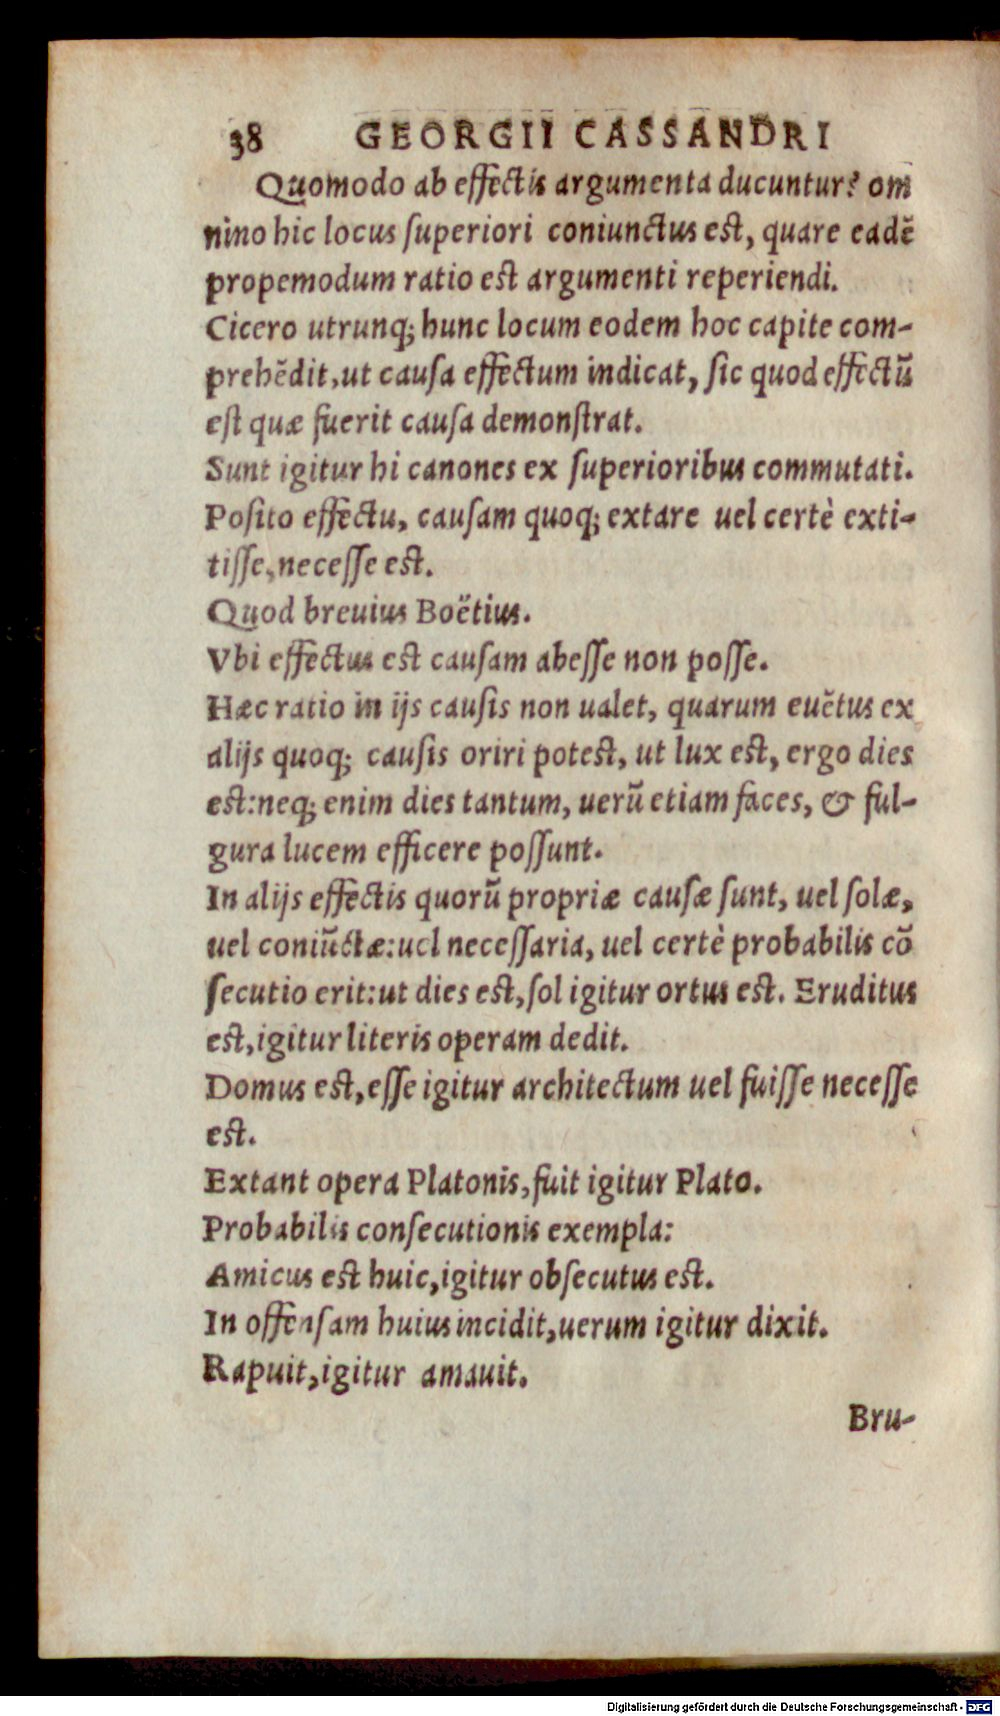 38 GEORGII CASSANDRI
Quomodo ab effectis argumenta ducuntur? om
nino hic locus ſuperiori coniunctus est, quare eadē
propemodum ratio est argumenti reperiendi.
Cicero utrunq; hunc locum eodem hoc capite com-
prehēdit, ut cauſa effectum indicat, ſic quod effectū
eſt quæ fuerit cauſa demonſtrat.
Sunt igitur hi canones ex ſuperioribus commutati.
Poſito effectu, cauſam quoq; extare uel certè exti-
tiſſe, neceſſe est.
Quod breuius Boëtius.
Vbi effectus est cauſam abeſſe non poſſe.
Hæc ratio in ijs cauſis non ualet, quarum euētus ex
alijs quoq; cauſis oriri potest, ut lux est, ergo dies
est: neq; enim dies tantum, uerū etiam faces, & ful-
gura lucem efficere poſſunt.
In alijs effectis quorū propriæ cauſæ ſunt, uel ſolæ,
uel coniūctæ: uel neceſſaria, uel certè probabilis cō
ſecutio erit: ut dies est, ſol igitur ortus est. Eruditus
est, igitur literis operam dedit.
Domus est, eſſe igitur architectum uel fuiſſe neceſſe
est.
Extant opera Platonis, fuit igitur Plato.
Probabilis conſecutionis exempla:
Amicus est huic, igitur obſecutus est.
In offenſam huius incidit, uerum igitur dixit.
Rapuit, igitur amauit.
Bru-
Digitalisierung gefördert durch die Deutsche Forschungsgemeinschaft - DFG